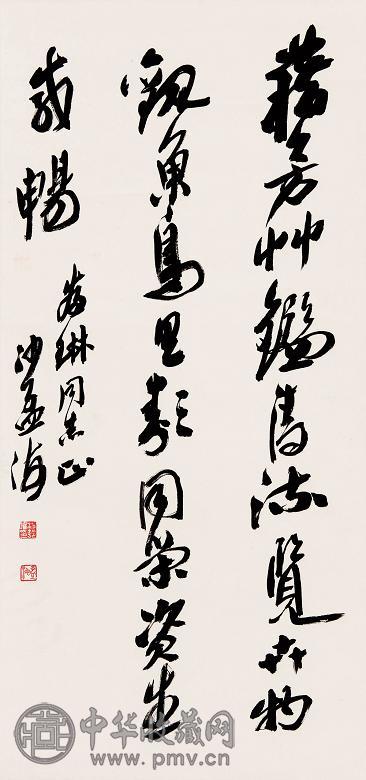 藉芳艸鑑清流覽卉物
觀魚鳥具類同榮資生
咸暢
琳同志正
沙孟海
中华收藏网
www.pmv.cn